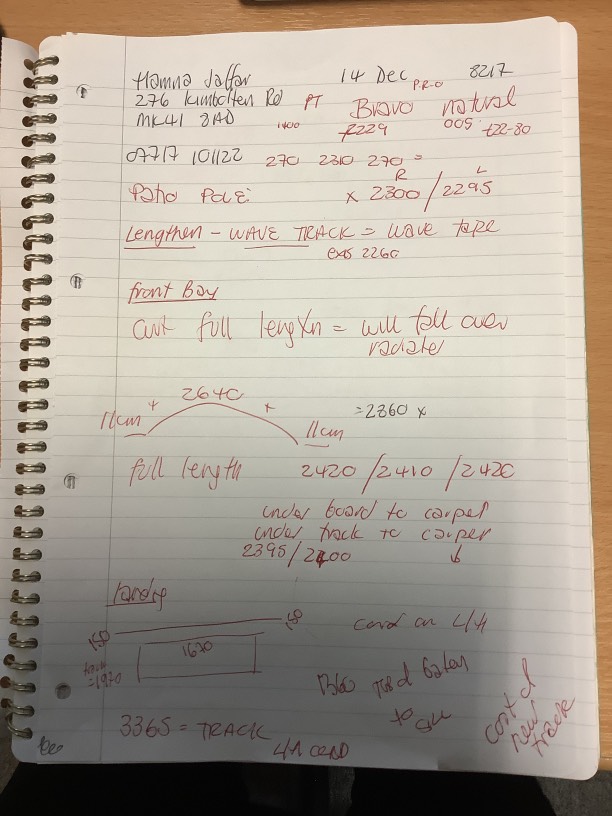 Hamna Jaffar 14 Dec P.R-0 8217
276 Kimbolten Rd PT Bravo natural
MK41 8AD 1400 7229 005 t22-80
07717 101122 270 2310 270 =
Patio Pole R L
x 2300 / 2295
Lengthen - WAVE TRACK = wave tape
exis 2260
front Bay
cant full length = will fall over
radiater
2640
11cm + + 11cm = 2860 x
full length 2420 / 2410 / 2420
under board to carpet
under track to carpet
2395 / 2400
150 150 cord on L/H
1620
= 1920
need baten
cost of
new
track
3365 = TRACK
L/H CORD